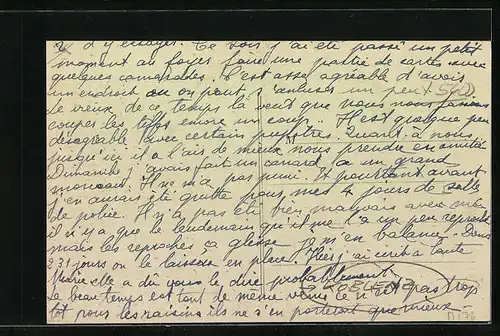 d'y essayer. Ce soir j'ai été passé un petit
moment au foyer faire une partie de cartes avec
quelques camarades. C'est assez agréable d'avoir
un endroit où on peut s'amuser un peu. 5502
Le vieux de ce temps la veut que nous nous fassions
couper les tiffs encore un coup. Il est quelque peu
désagréable avec certains. Quant à nous
jusqu'ici il a l'air de mieux nous prendre en amitié
Dimanche j'avais fait un canard a un grand
morceau. Il ne m'a pas puni. Et pourtant avant
j'en aurais été quitte pour mes 4 jours de salle
de police. Il n'a pas été bien mauvais avec moi
il n'y a que le lendemain qu'il me l'a un peu reproché
mais les reproches ça glisse je m'en balance. Dans
231 jours on le laissera en place. Hier j'ai écrit à tante
Marie elle a dû vous le dire probablement
Le beau temps est tout de même venu ce n'est pas trop
tôt pour les raisins ils ne s'en porteront que mieux
KOBLENZ